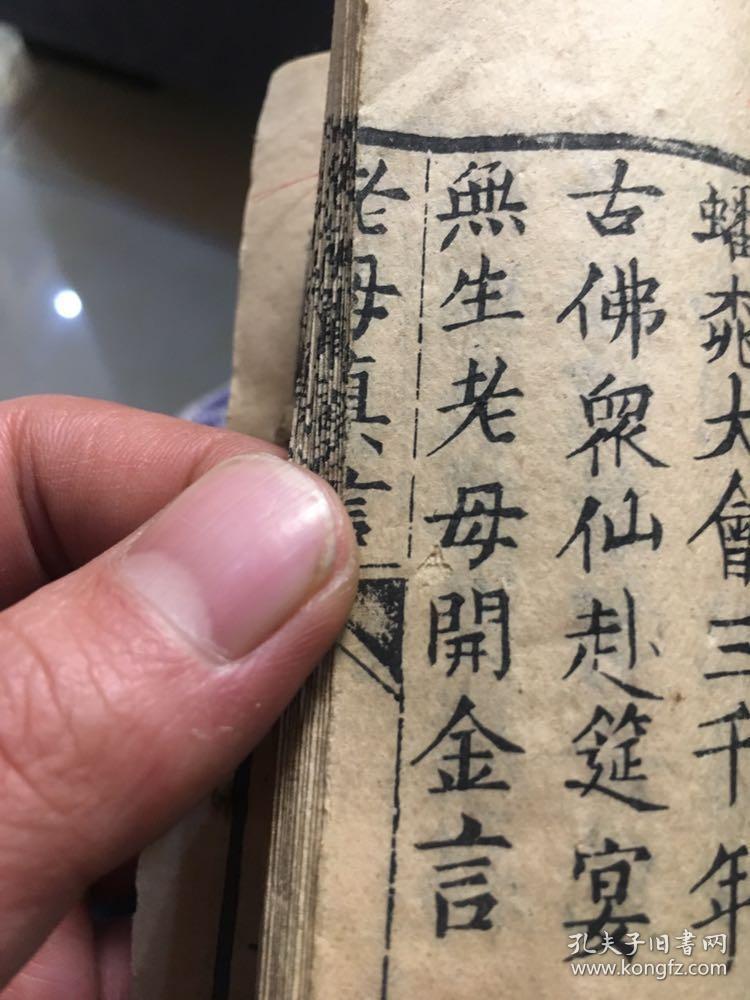 蟠桃大會三千年
古佛眾仙赴筵宴
無生老母開金言
老母真言
孔夫子旧书网
www.kongfz.com